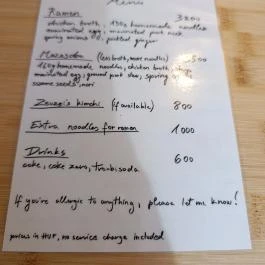 Menu
Ramen 3200
chicken broth, 130g homemade noodles
marinated egg, marinated pork neck
spring onions, pickled ginger
Mazesoba (less broth, more noodles) 3500
160g homemade noodles, chicken broth,
marinated egg, ground pork stew, spring onion
sesame seeds, nori
kimchi (if available) 800
Extra noodles for ramen 1000
Drinks 600
coke, coke zero,
If you're allergic to anything, please let me know!
prices in HUF, no service charge included